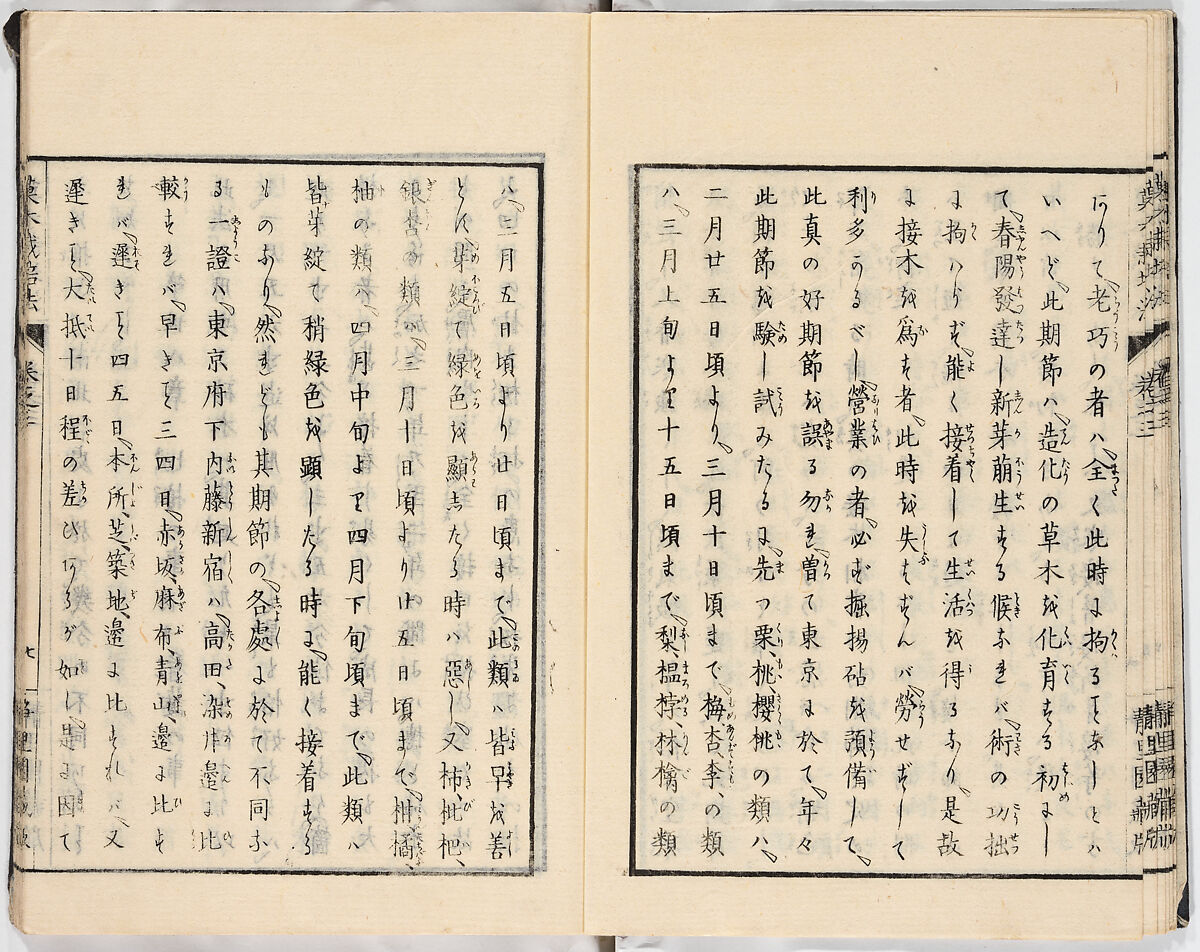 ありて、老巧の者ハ全く此時に拘るヿなしとハ
いへど、此期節ハ、造化の草木を化育する初にし
て、春陽發達し新芽萠生する候なれバ、術の功拙
に拘ハらず、能く接着して生活を得るなり、是故
に接木を爲す者、此時を失すずんバ、勞せずして
利多かるべし、營業の者、必ず掘揚砧を預備して、
此真の好期節を誤る勿れ、曽て東京に於て、年々
此期節を驗し試みたるに、先つ栗、桃、櫻桃の類ハ、
二月廿五日頃より、三月十日頃まで、梅、杏、李、の類
ハ、三月上旬より十五日頃まで、梨、榲桲、林檎の類
ハ、三月五日頃より廿日頃まで、此類ハ皆早を善
とす、芽綻びて緑色を顯したる時ハ惡し、又柿、枇杷、
銀杏の類ハ、三月十日頃より廿五日頃まで、柑橘、
柚の類ハ、四月中旬より四月下旬頃まで、此類ハ
皆芽綻て稍緑色を顯したる時に、能く接着する
ものなり、然れども其期節の、各處に於て不同な
る一證ハ、東京府下内藤新宿ハ、高田、染井邊に比
較すれバ、早きヿ三四日、赤坂、麻布、青山、邊に比す
れバ、遲きヿ四五日、本所、芝、築地、邊に比すれバ、又
遲きヿ、大抵十日程の差ひあるが如し、是に因て
菓木栽培法
卷之三
七
靜里園藏版